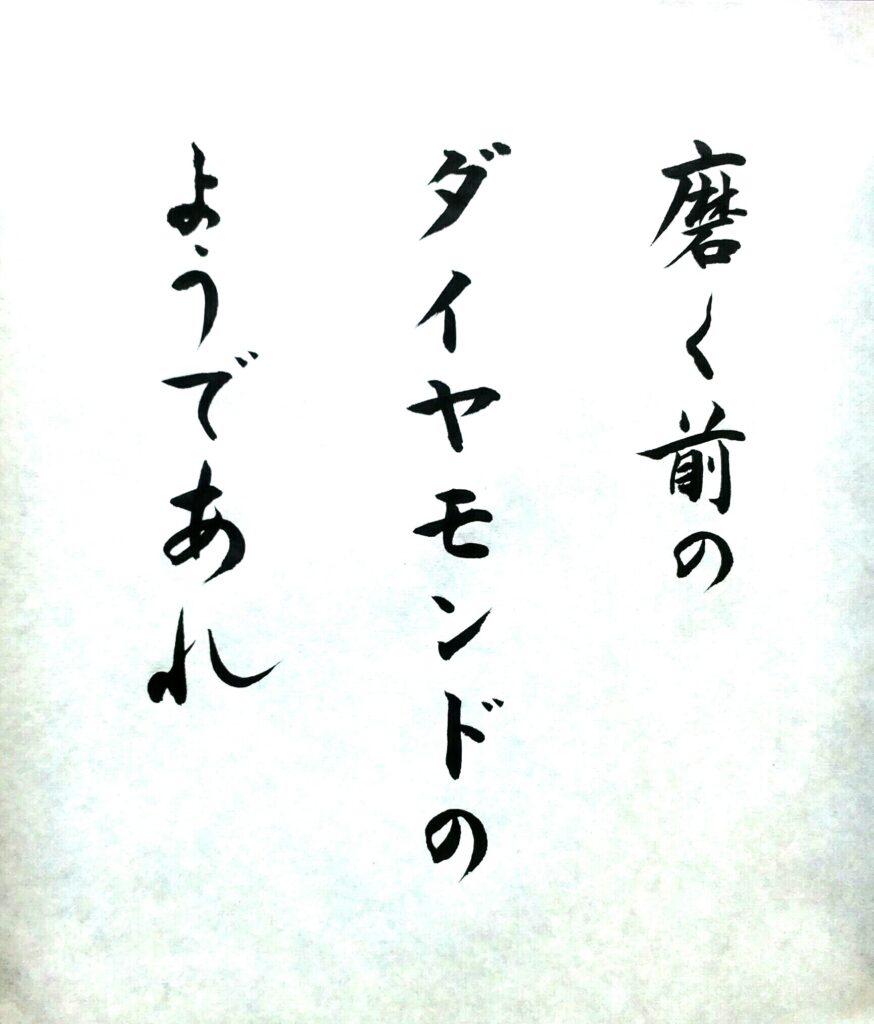 磨く前の
ダイヤモンドの
ようであれ